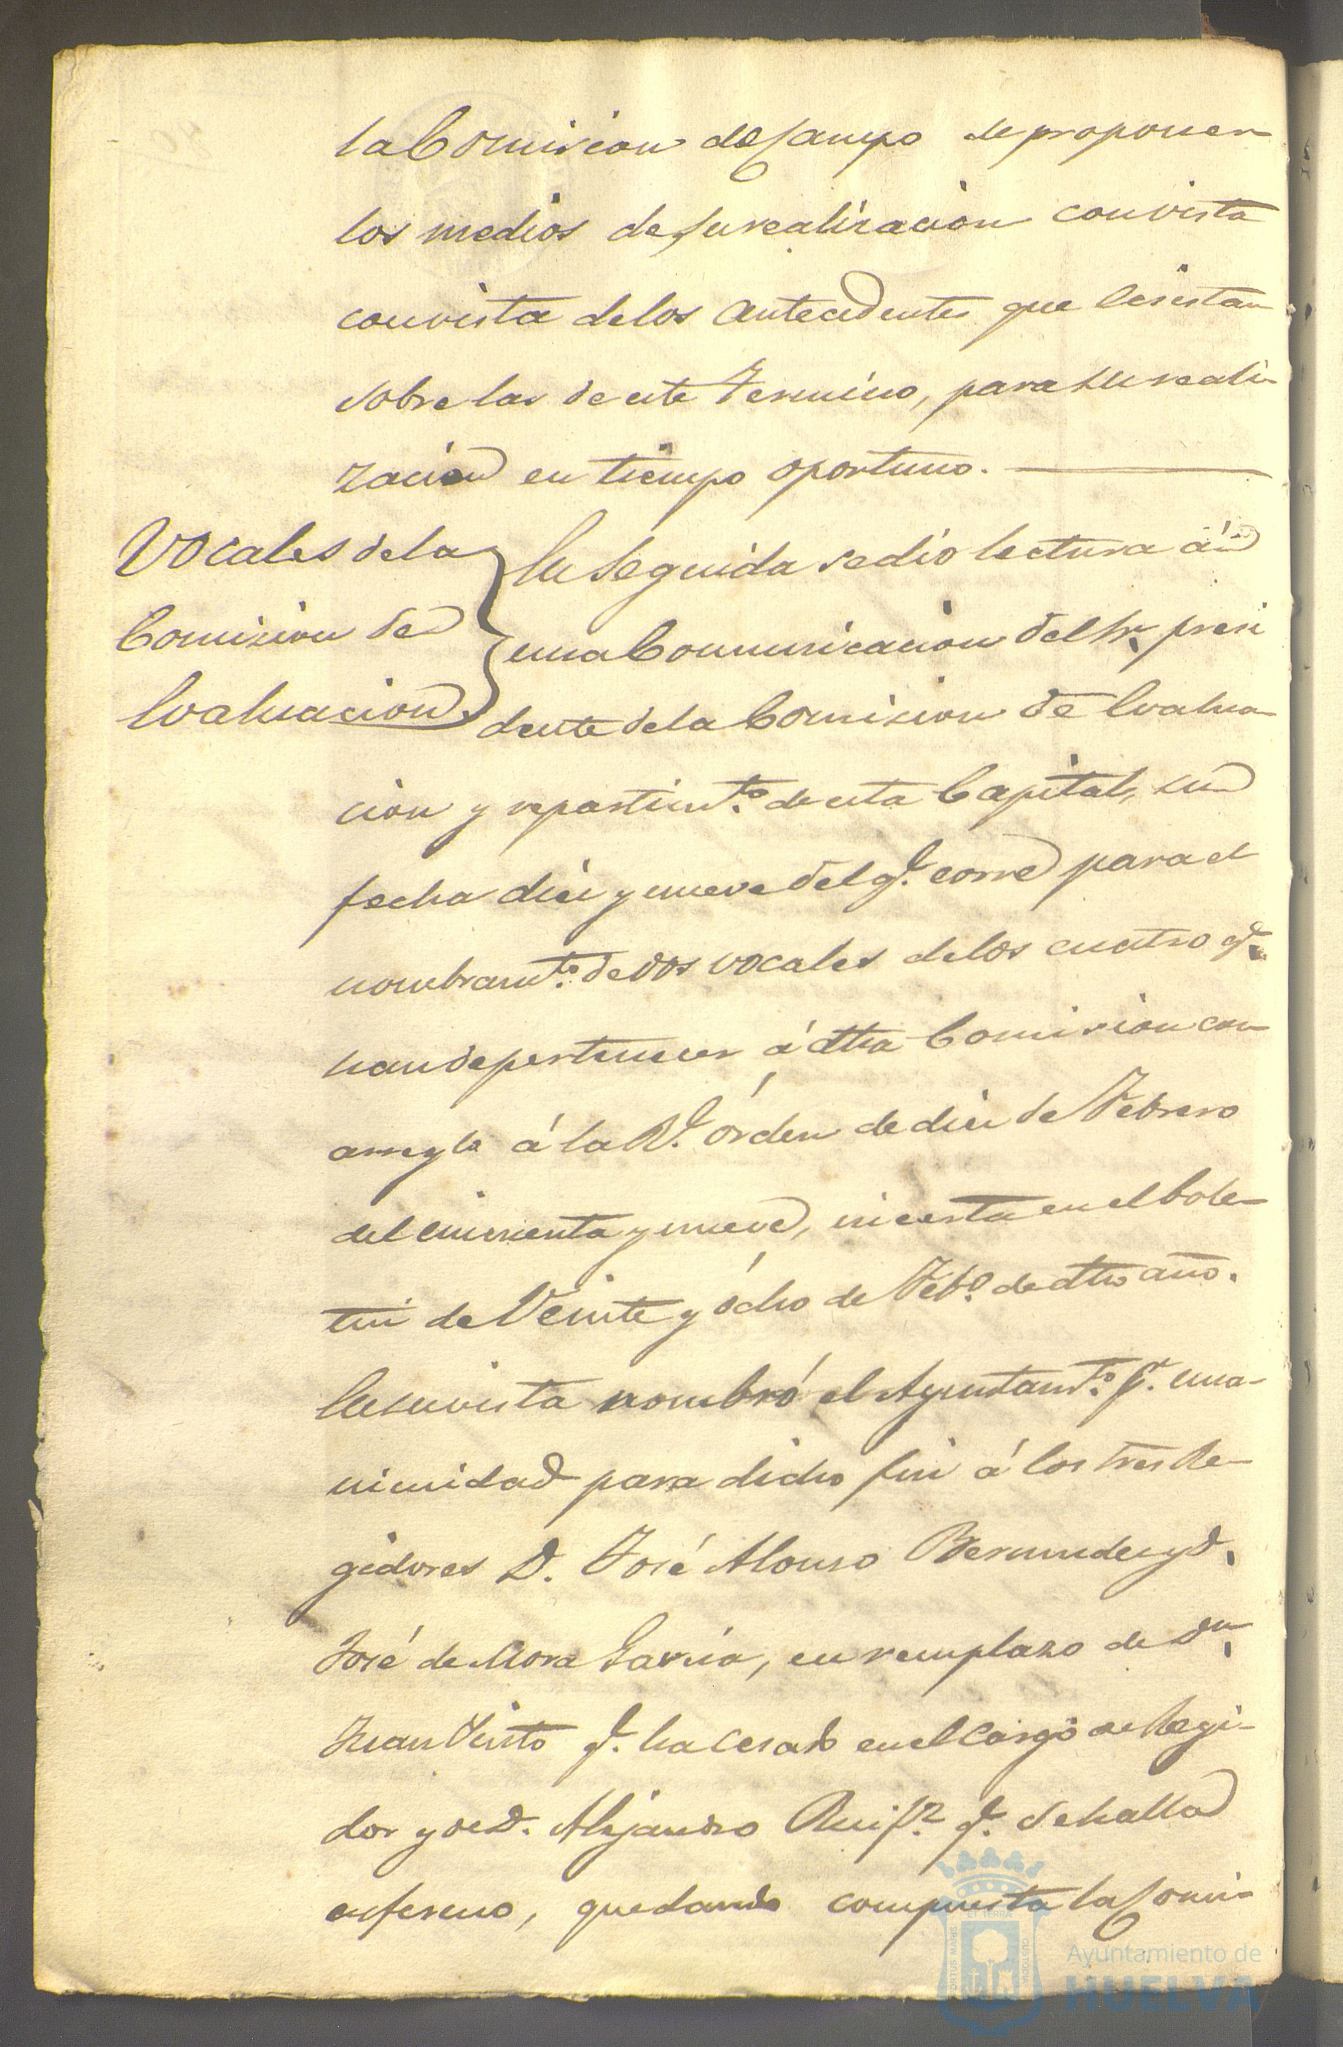 la Comision de Campo de proponer
los medios de su realizacion con vista
con vista de los antecedentes que ecsistan
sobre las de este Termino, para su reali-
zacion en tiempo oportuno.
Vocales de la
Comision de
Evaluacion.
En seguida se dio lectura á
una Comunicacion del Sr. presi
dente de la Comision de Evalua-
cion y repartimto. de esta Capital, su
fecha diez y nueve del q. corre para el
nombramto. de dos vocales de los cuatro q.
han de pertenecer á dha Comision con
arreglo á la Rl. órden de diez de Febrero
del cincuenta y nueve, incerta en el bole-
tin de Veinte y ócho de Febo. de dho año.
En su vista nombró el Ayuntamto. pr. una-
nimidad para dicho fin á los tres Re-
gidores D. José Alonso Bermudez y D.
José de Mora Garcia, en remplazo de Dn.
Juan Pinto q. ha cesado en el cargo de Regi-
dor y de D. Alejandro q. se halla
enfermo, quedando compuesta la Comi-
Ayuntamiento de
HUELVA